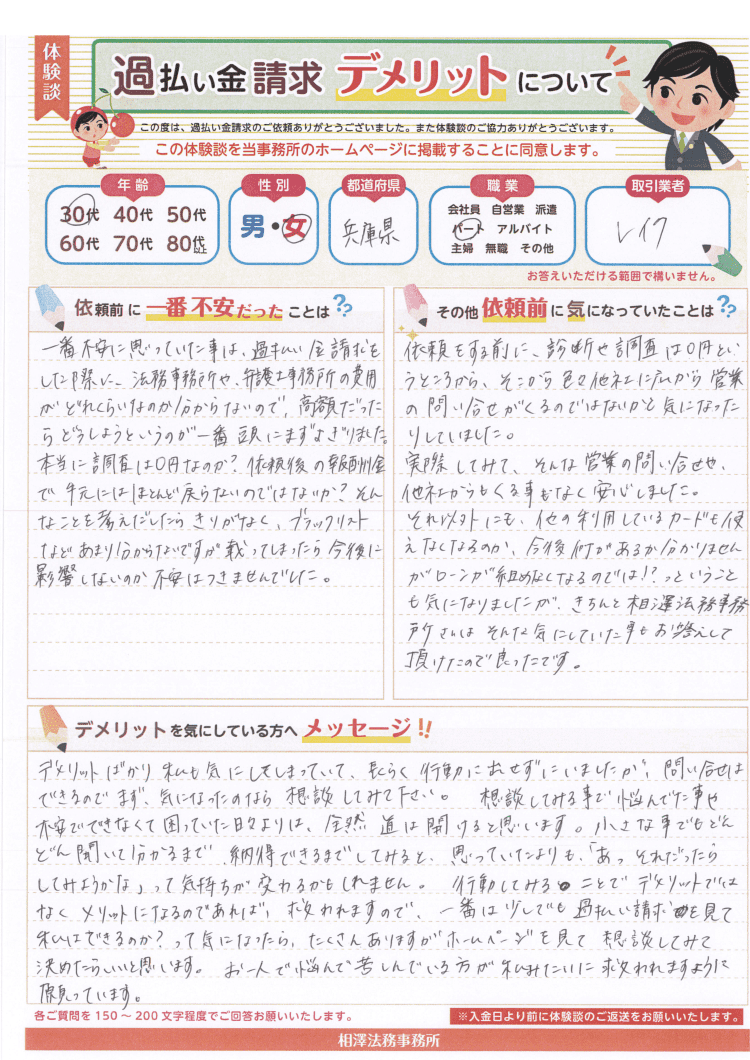 体験談
過払い金請求 デメリットについて
この度は、過払い金請求のご依頼ありがとうございました。また体験談のご協力ありがとうございます。
この体験談を当事務所のホームページに掲載することに同意します。
年齢
30代 40代 50代
60代 70代 80代以上
性別
男・女
都道府県
兵庫県
職業
会社員 自営業 派遣
パート アルバイト
主婦 無職 その他
取引業者
レイク
お答えいただける範囲で構いません。
依頼前に一番不安だったことは??
一番不安に思っていた事は、過払い金請求を
した際に、法務事務所や、弁護士事務所の費用
がどれくらいなのか分からないので、高額だった
らどうしようというのが一番頭にまずよぎりました。
本当に調査は0円なのか?依頼後の報酬金
で手元にはほとんど戻らないのではないか?そん
なことを考えだしたらきりがなく、ブラックリスト
などあまり分からないですが載ってしまったら今後に
影響しないのか不安はつきませんでした。
その他依頼前に気になっていたことは??
依頼をする前に、診断や調査は0円とい
うところから、そこから色々他社に広がり営業
の問い合せがくるのではないかと気になった
りしていました。
実際してみて、そんな営業の問い合せや、
他社からもくる事もなく安心しました。
それ以外にも、他の利用しているカードも使
えなくなるのか、今後何があるか分かりません
がローンが組めなくなるのでは!?っということ
も気になりましたが、きちんと相澤法務事務
所さんはそんな気にしていた事もお答えして
頂けたので良ったです。
デメリットを気にしている方へメッセージ!!
デメリットばかり私も気にしてしまっていて、長らく行動におせずにいましたが、問い合せは
できるのでまず、気になったのなら想談してみて下さい。 想談してみる事で悩んでた事や
不安でできなくて困っていた日々よりは、全然道は開けると思います。小さな事でもどん
どん聞いて分かるまで納得できるまでしてみると、思っていたよりも、「あっそれだったら
してみようかな」って気持ちが変わるかもしれません。 行動してみることでデメリットでは
なくメリットになるのであれば、救われますので、一番は少しでも過払い請求を見て
私はできるのか?って気になったら、たくさんありますがホームページを見て想談してみて
決めたらいいと思います。 お一人で悩んで苦しんでいる方が私みたいに救われますように
願っています。
各ご質問を150~200文字程度でご回答お願いいたします。
※入金日より前に体験談のご返送をお願いいたします。
相澤法務事務所